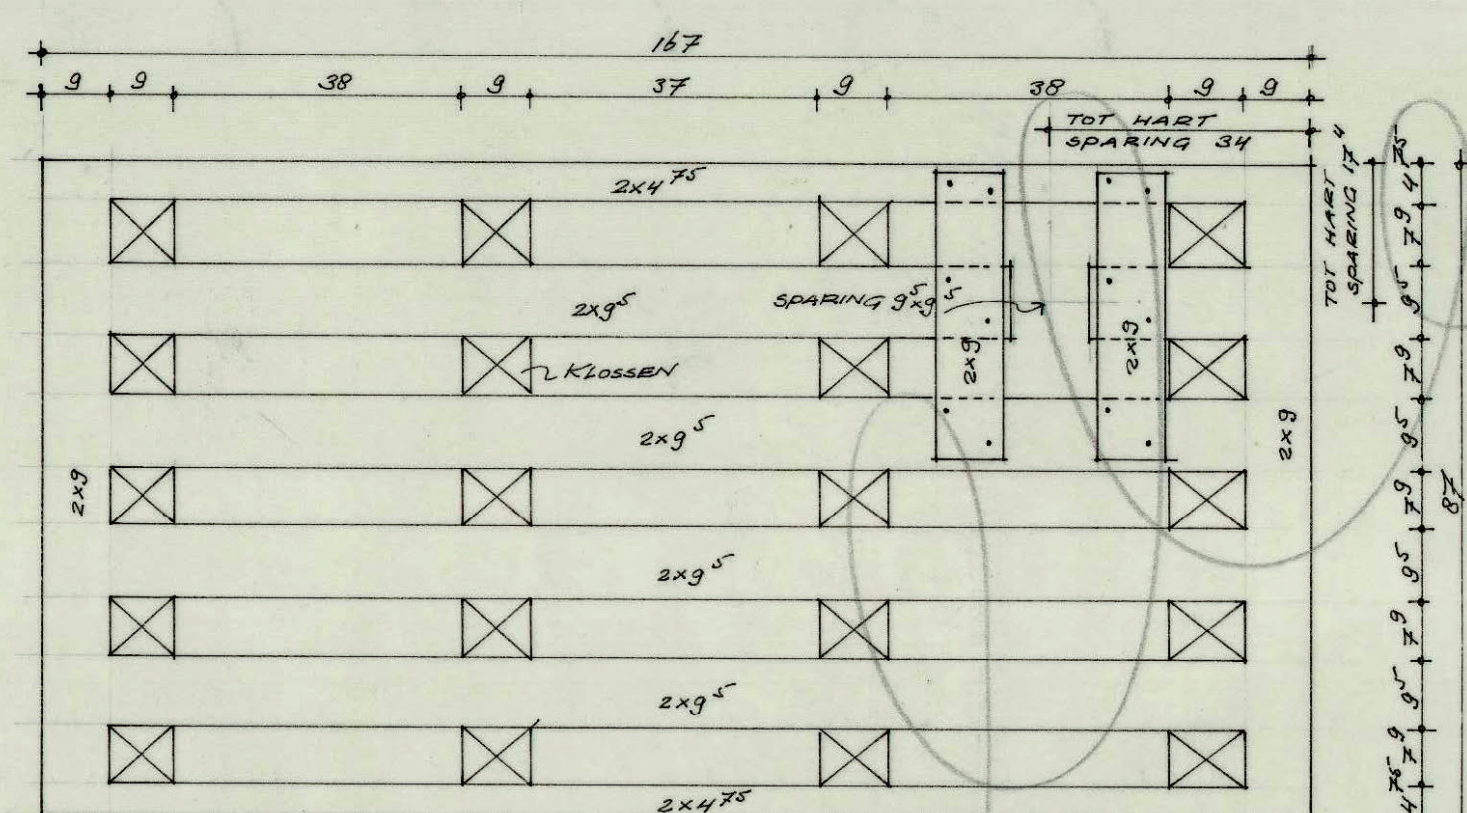 167
9 9 38 9 37 9 38 9 9
TOT HART
SPARING 34
TOT HART
SPARING 17⁴
2×4⁷⁵
2×9⁵
SPARING 9⁵×9⁵
KLOSSEN
2×9
2×9
2×9⁵
2×9
2×9
2×9⁵
2×9⁵
2×4⁷⁵
4⁷⁵
7⁹
9⁵
7⁹
9⁵
7⁹
9⁵
7⁹
9⁵
7⁹
4⁷⁵
87